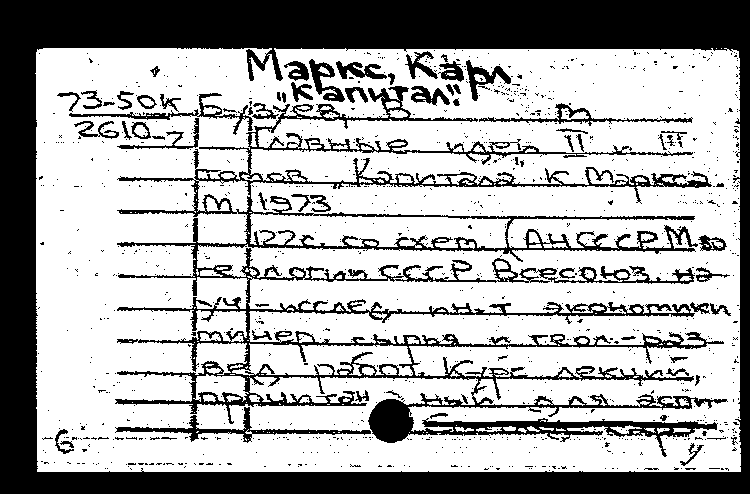 Маркс, Карл.
"Капитал".
73-50к Бузуев, В м
2610-7 Главные идеи II и III
томов „Капитала" К Маркса.
М. 1973
127с. со схем. (АН СССР. М-во
геологии СССР. Всесоюз. на-
уч-исслед. ин-т экономики
минер. сырья и геол.-раз
вед. работ. Курс лекций,
прочитан ный для аспи-
б.